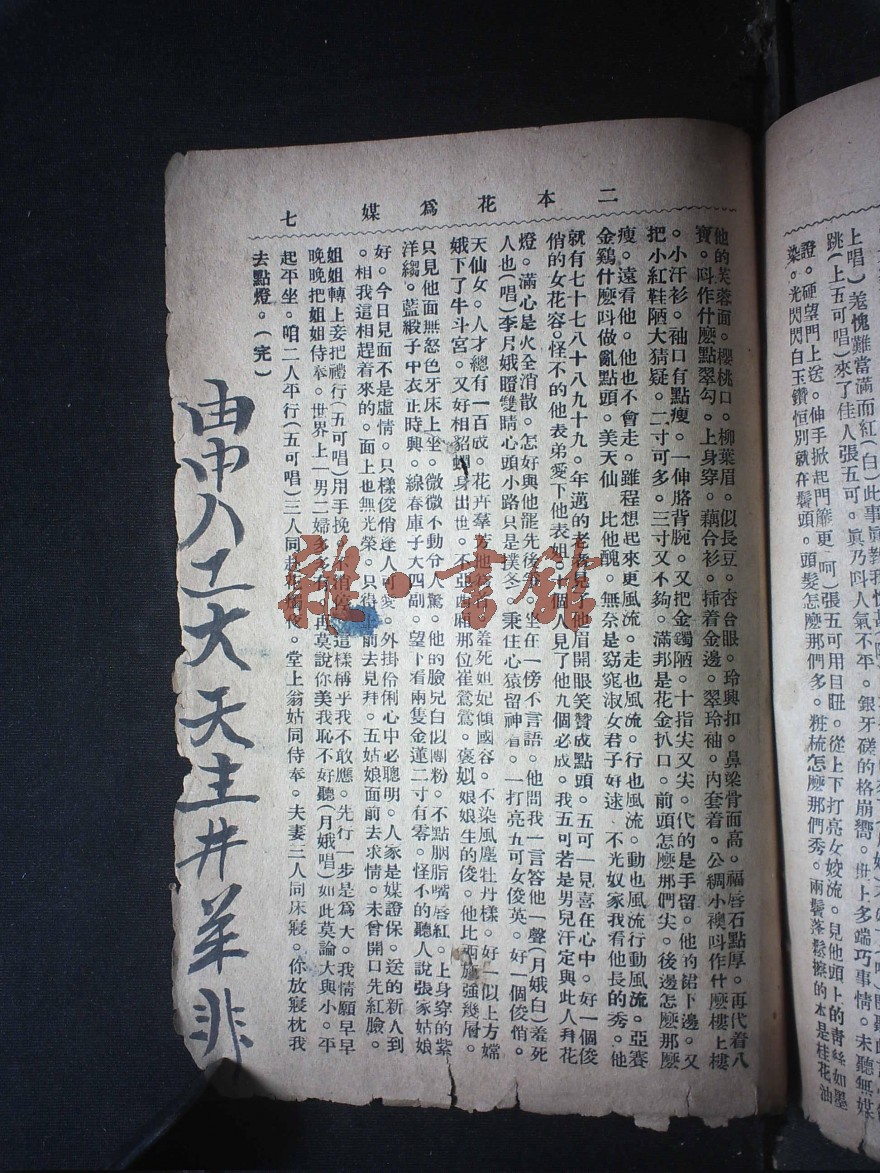 上唱）羞愧難當滿面紅（白）此事
跳（上五可唱）來了佳人張五可。眞乃呌人氣不平。銀牙磋的格崩嚮。世上多端巧事情。未聽無媒
證。硬望門上送。伸手掀起門簾更（呵）張五可用目瞅。從上下打亮女姣流。見他頭上的青絲如墨
染。光閃閃白玉鑽恒別就在鬢頭。頭髮怎麼那們多。粧梳怎麼那們秀。兩鬢蓬鬆擦的本是桂花油
二本花爲媒 七
他的芙蓉面。櫻桃口。柳葉眉。似長豆。杏台眼。玲興扣。鼻梁骨面高。福唇石點厚。再代着八
寶。呌作什麼點翠勾。上身穿。藕合衫。揷着金邊。翠玲袖。內套着。公綢小襖呌作什麼樓上樓
。小汗衫。袖口有點瘦。一伸胳背腕。又把金鐲陋。十指尖又尖。代的是手留。他的裙下邊。又
把小紅鞋陋大猜疑。二寸可多。三寸又不夠。滿邦是花金扒口。前頭怎麼那們尖。後邊怎麼那麼
瘦。遠看他。他也不會走。雖程想起來更風流。走也風流。行也風流。動也風流行動風流。亞賽
金鷄什麼呌做亂點頭。美天仙 比他醜。無奈是窈窕淑女君子好逑。不光奴家我看他長的秀。他
就有七十七八十八九十九。年邁的老者見了他眉開眼笑贊成點頭。五可一見喜在心中。好一個俊
俏的女花容。怪不的他表弟愛下他表姐十個人見了他九個必成。我五可若是男兒汗定與此人拜花
燈。滿心是火全消散。怎好與他罷先後爭。坐在一傍不言語。他問我一言答他一聲（月娥白）羞死
人也（唱）李月娥瞪雙睛心頭小路只是樸冬。秉住心猿留神看。一打亮五可女俊英。好一個俊俏。
天仙女。人才總有一百成。花卉羣芳他爲首羞死妲妃傾國容。不染風塵牡丹樣。好一似上方嫦
娥下了牛斗宮。又好相貂蟬身出世。不亞西廂那位崔鶯鶯。褒姒娘娘生的俊。他比西施強幾層。
只見他面無怒色牙床上坐。微微不動分驚。他的臉兒白似團粉。不點胭脂嘴唇紅。上身穿的紫
洋縐。藍緞子中衣正時興。線春庫子大四副。望下看兩隻金蓮二寸有零。怪不的聽人說張家姑娘
好。今日見面不是虛情。只樣俊俏逢人可愛。外掛伶俐心中必聰明。人家是媒證保。送的新人到
。相我這相趕着來的。面上也無光榮。只得上前去見拜。五姑娘面前去求情。未曾開口先紅臉。
姐姐轉上妾把禮行（五可唱）用手挽。不消停。這樣稱乎我不敢應。先行一步是爲大。我情願早早
晚晚把姐姐侍奉。世界上一男二婦多多有。再莫說你美我恥不好聽（月娥唱）如此莫論大與小。平
起平坐。咱二人平行（五可唱）三人同赴花燭夜。堂上翁姑同侍奉。夫妻三人同床寢。你放寢枕我
去點燈。（完）
由中人工大天主井羊非
雜·書館